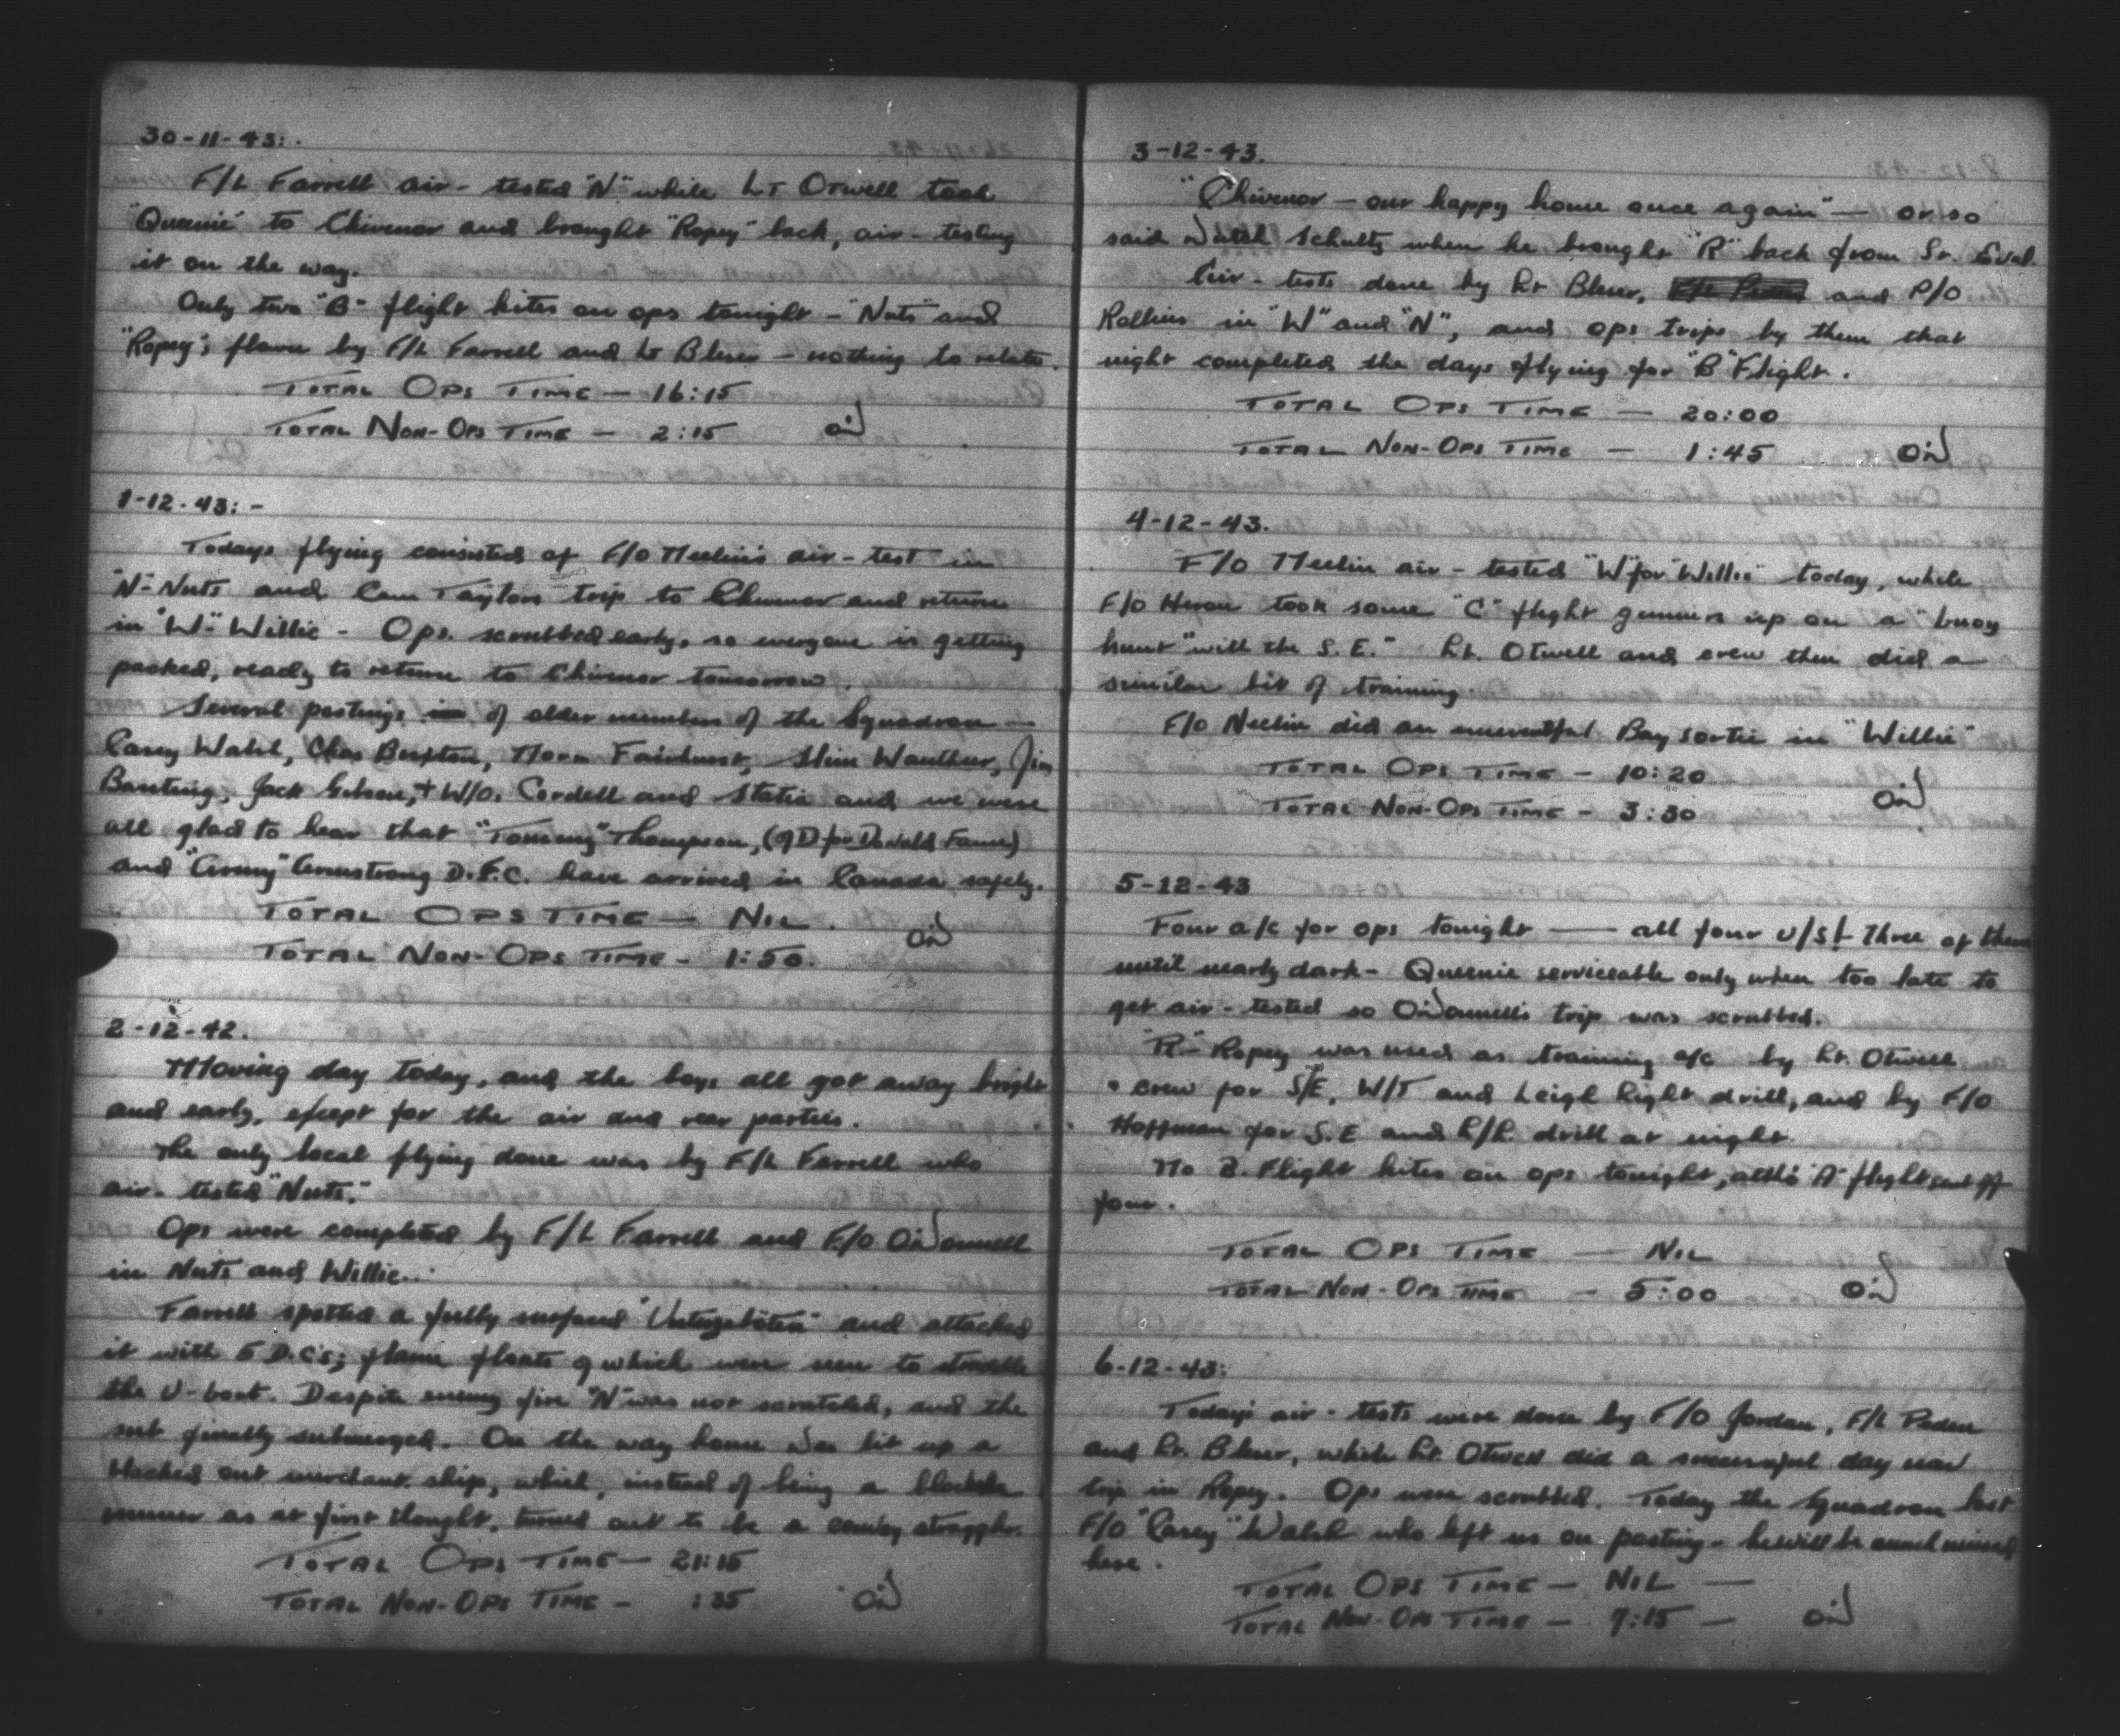 30-11-43:.
F/L Farrell air-tested "N" while Lt Otwell took
"Queenie" to Chivenor and brought "Ropey" back, air-testing
it on the way.
Only two "B" flight kites on ops tonight - "Nuts" and
"Ropey"; flown by F/L Farrell and Lt Bleser - nothing to relate.
TOTAL OPS TIME - 16:15
TOTAL NON-OPS TIME - 2:15 O'D
1-12-43:-
Todays flying consisted of F/O Neelin's air-test in
"N"-Nuts and Cam Taylors trip to Chivenor and return
in "W-" Willie - Ops. scrubbed early, so everyone is getting
packed, ready to return to Chivenor tomorrow.
Several postings of older members of the Squadron -
Casey Walsh, Chas Buxton, Norm Fairhurst, Slim, Jim
Banting, Jack Gibson, + W/O. Cordell and Statia and we were
all glad to hear that "Tommy" Thompson, (of D for Donald Fame)
and "Army" Armstrong D.F.C. have arrived in Canada safely.
TOTAL OPS TIME - NIL.
TOTAL NON-OPS TIME - 1:50. O'D
2-12-42.
Moving day today, and the boys all got away bright
and early, except for the air and rear parties.
The only local flying done was by F/L Farrell who
air-tested "Nuts."
Ops were completed by F/L Farrell and F/O O'Donnell
in Nuts and Willie.
Farrell spotted a fully surfaced and attacked
it with 5 D.C's; flame floats of which were seen to straddle
the U-boat. Despite enemy fire "N" was not scratched, and the
sub finally submerged. On the way home Joe lit up a
blacked out merchant ship, which, instead of being a blockade
runner as at first thought, turned out to be a convoy straggler.
TOTAL OPS TIME - 21:15
TOTAL NON-OPS TIME - :35 O'D
3-12-43.
"Chivenor - our happy home once again" - or so
said Dutch Schultz when he brought "R" back from St. Eval.
Air-tests done by Lt Bleser, and P/O
Rollins in "W" and "N", and ops trips by them that
night completed the days flying for "B" Flight.
TOTAL OPS TIME - 20:00
TOTAL NON-OPS TIME - 1:45 O'D
4-12-43.
F/O Neelin air-tested "W for Willie" today, while
F/O Heron took some "C" flight gunners up on a "buoy
hunt" with the S.E." Lt. Otwell and crew then did a
similar bit of training.
F/O Neelin did an uneventful Bay sortie in "Willie"
TOTAL OPS TIME - 10:20
TOTAL NON-OPS TIME - 3:30 O'D
5-12-43
Four a/c for ops tonight - all four U/S! Three of them
until nearly dark - Queenie serviceable only when too late to
get air-tested so O'Donnell's trip was scrubbed.
"R-" Ropey was used as training a/c by Lt. Otwell
+ crew for S/E, W/T and Leigh Light drill, and by F/O
Hoffman for S.E and L/L drill at night.
No B. Flight kites on ops tonight, altho "A" flight sent off
four.
TOTAL OPS TIME - NIL
TOTAL NON-OPS TIME - 5:00 O'D
6-12-43:
Today's air-tests were done by F/O Jordan, F/L Peden
and Lt. Bleser, while Lt. Otwell did a successful day nav
trip in Ropey. Ops were scrubbed. Today the Squadron lost
F/O "Casey" Walsh who left us on posting - he will be much missed
here.
TOTAL OPS TIME - NIL -
TOTAL NON-OPS TIME - 7:15 - O'D